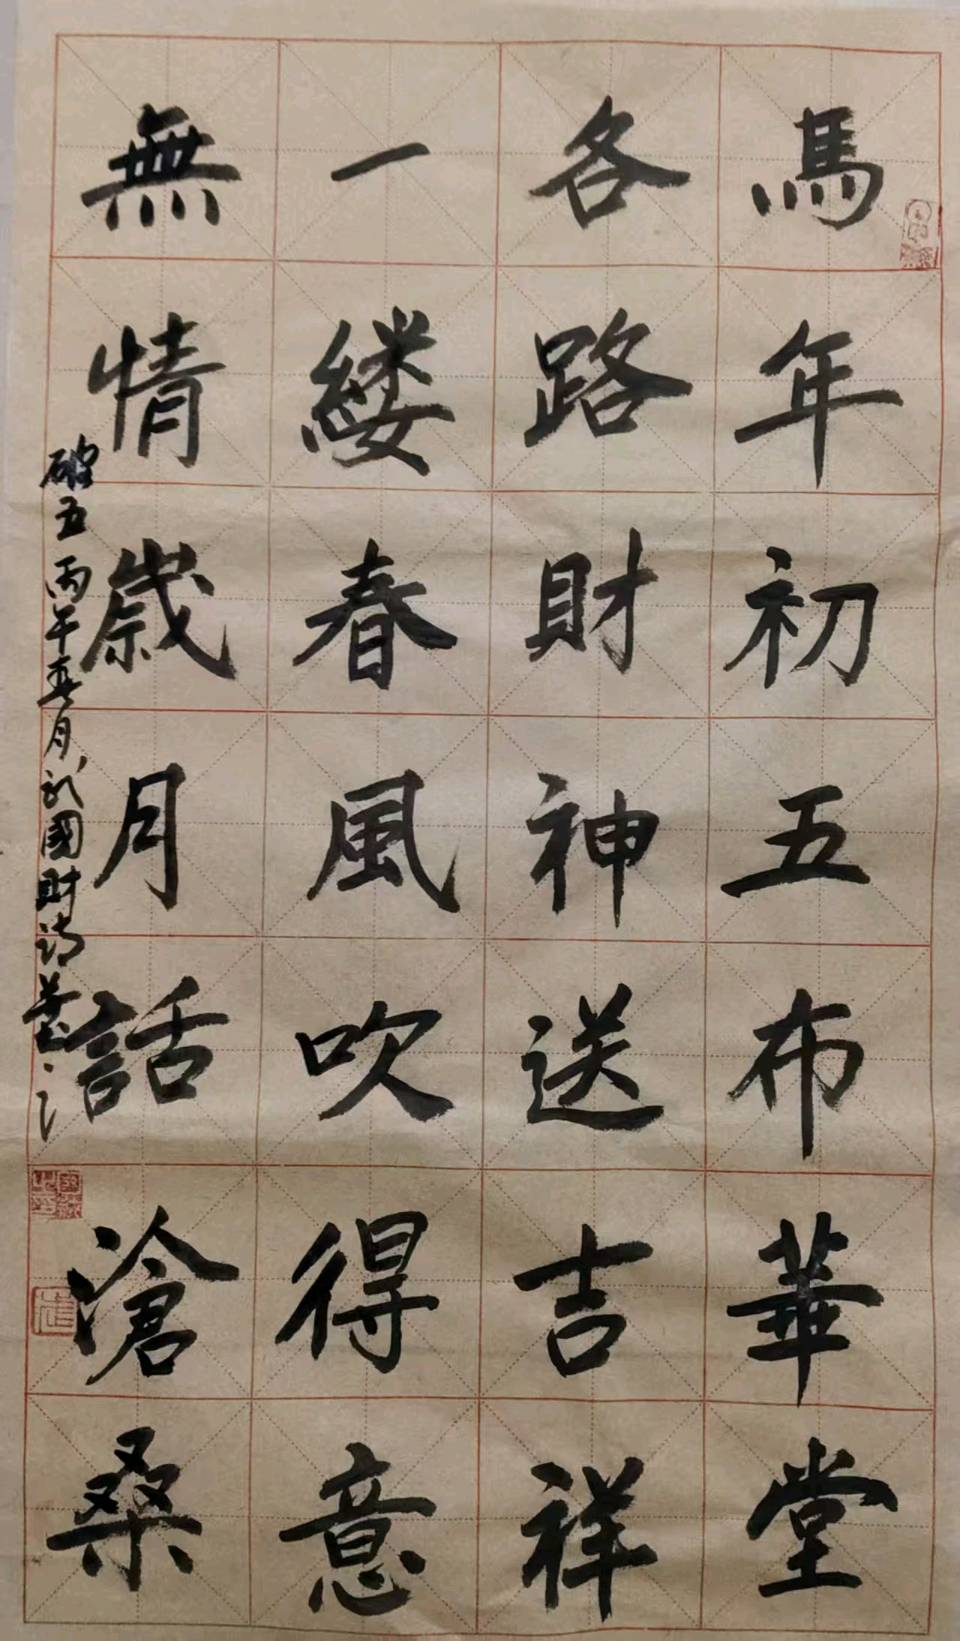 馬年初五布華堂
各路財神送吉祥
一縷春風吹得意
無情歲月話滄桑
破五 丙午 月 國財詩